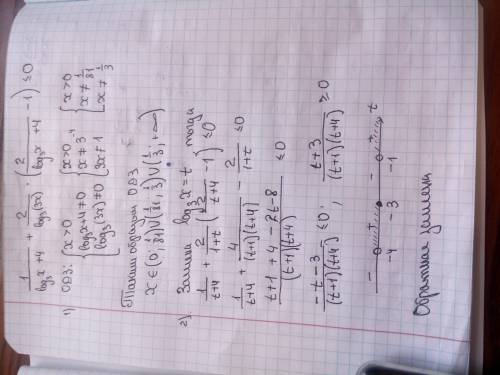 1/(log₃x+4) + 2/log₃(3x) · (2/(log₃x+4) − 1) ≤ 0
1) ОДЗ: { x>0 { x>0 { x>0
log₃x+4≠0 x≠3⁻⁴ x≠1/81
log₃(3x)≠0 3x≠1 x≠1/3
Таким образом ОДЗ
x∈(0; 1/81)∪(1/81; 1/3)∪(1/3; +∞)
2) Замена log₃x=t, тогда
1/(t+4) + 2/(1+t) · (2/(t+4) − 1) ≤ 0
1/(t+4) + 4/((t+1)(t+4)) − 2/(1+t) ≤ 0
(t+1+4−2t−8)/((t+1)(t+4)) ≤ 0
(−t−3)/((t+1)(t+4)) ≤ 0; (t+3)/((t+1)(t+4)) ≥ 0
− − t
−4 −3 −1
Обратная замена